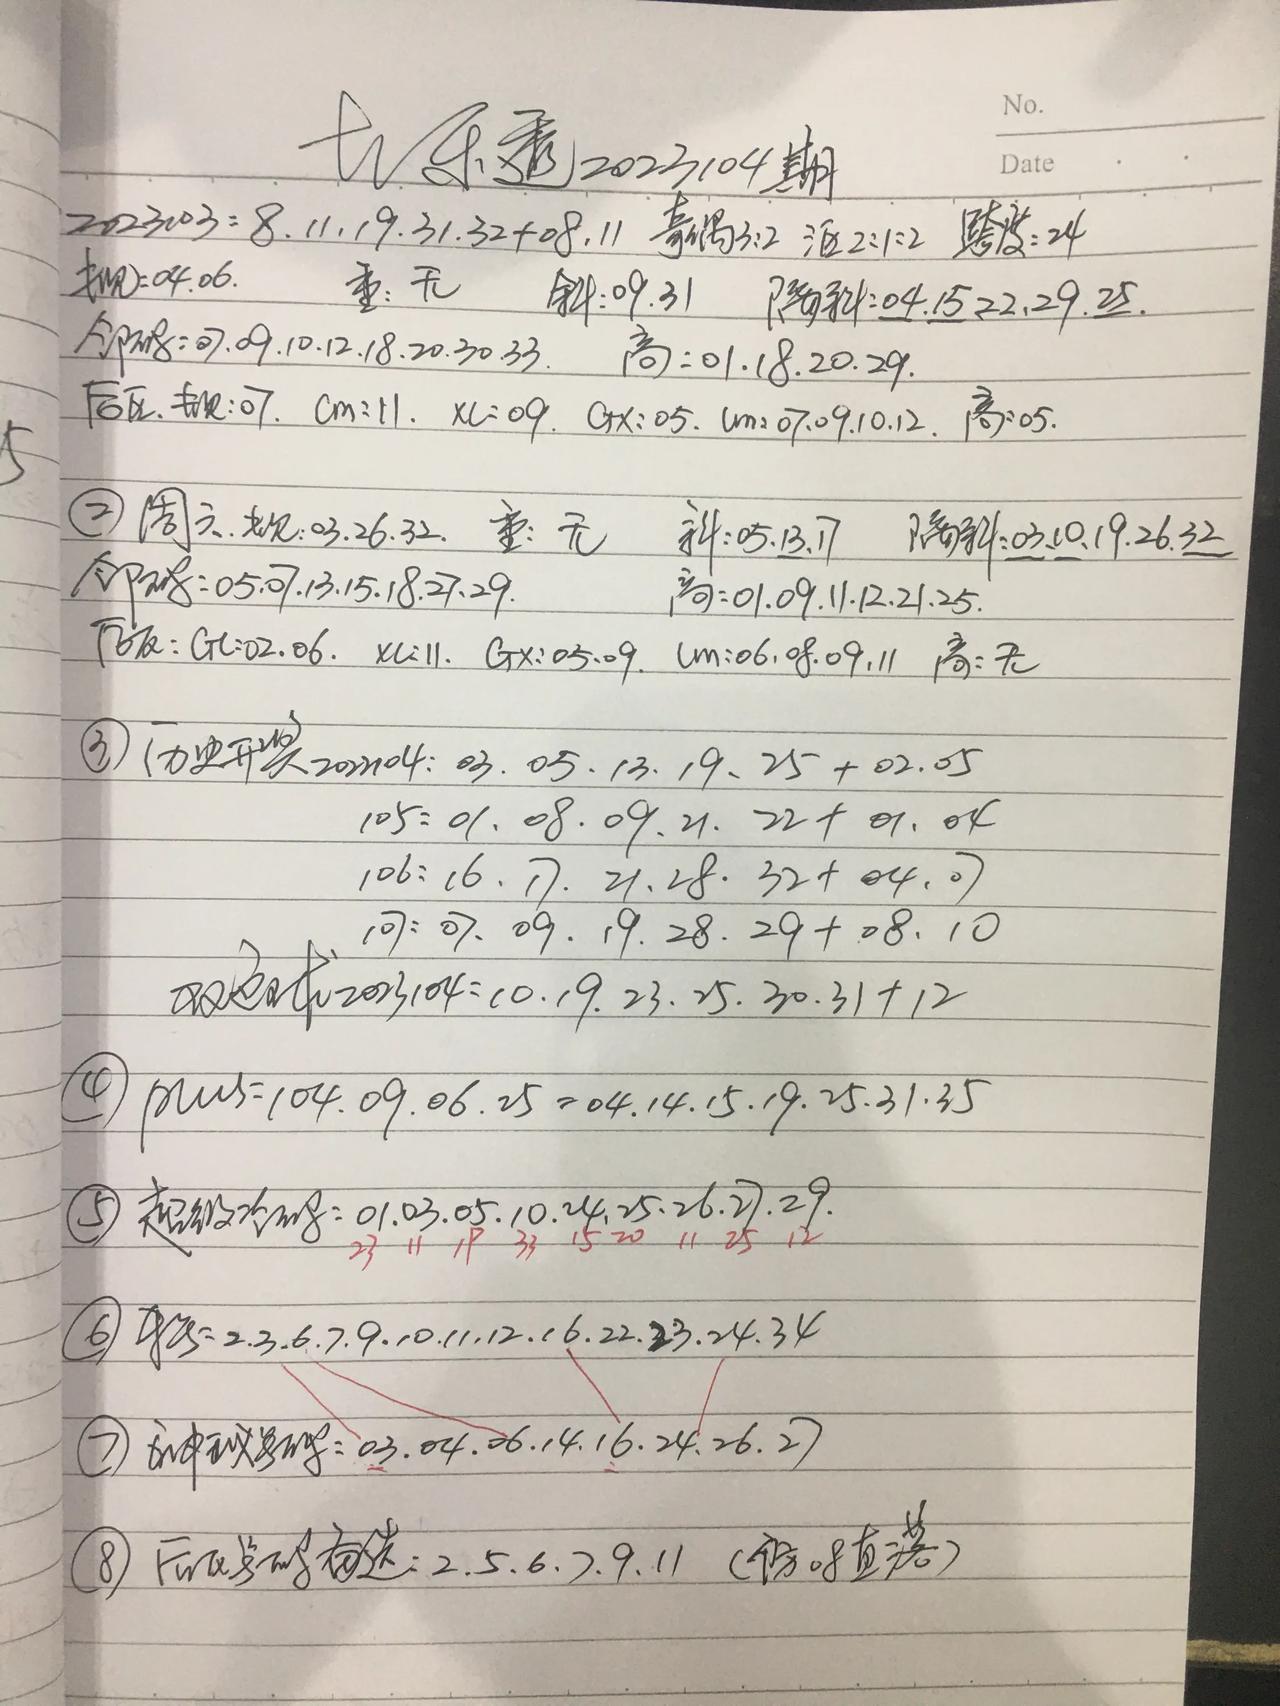 大乐透2023104期
No.
Date
2023103=8.11.19.31.32+08.11 奇偶3:2 区2:1:2 跨度=24
规:04.06. 重:无 斜:09.31 隔斜:04.15.22.29.25.
邻码=07.09.10.12.18.20.30.33. 高=01.18.20.29.
后区.规:07. Cm:11. XL=09. GX:05. Lm:07.09.10.12. 高:05.
② 周六.规:03.26.32. 重:无 斜:05.13.17 隔斜:03.10.19.26.32
邻码=05.07.13.15.18.27.29. 高=01.09.11.12.21.25.
后区:GL:02.06. XL:11. GX:05.09. Lm:06.08.09.11 高:无
③ 历史开奖2022104:03.05.13.19.25+02.05
105=01.08.09.21.22+01.04
106=16.17.21.28.32+04.07
107=07.09.19.28.29+08.10
双色球2023104=10.19.23.25.30.31+12
④ plus=104.09.06.25=04.14.15.19.25.31.35
⑤ 超级冷码=01.03.05.10.24.25.26.27.29.
23 11 18 33 15 20 11 25 12
⑥ =2.3.6.7.9.10.11.12.16.22.23.24.34
⑦ 神秘号码=03.04.06.14.16.24.26.27
⑧ 后区号码首选:2.5.6.7.9.11 (防08直落)
5